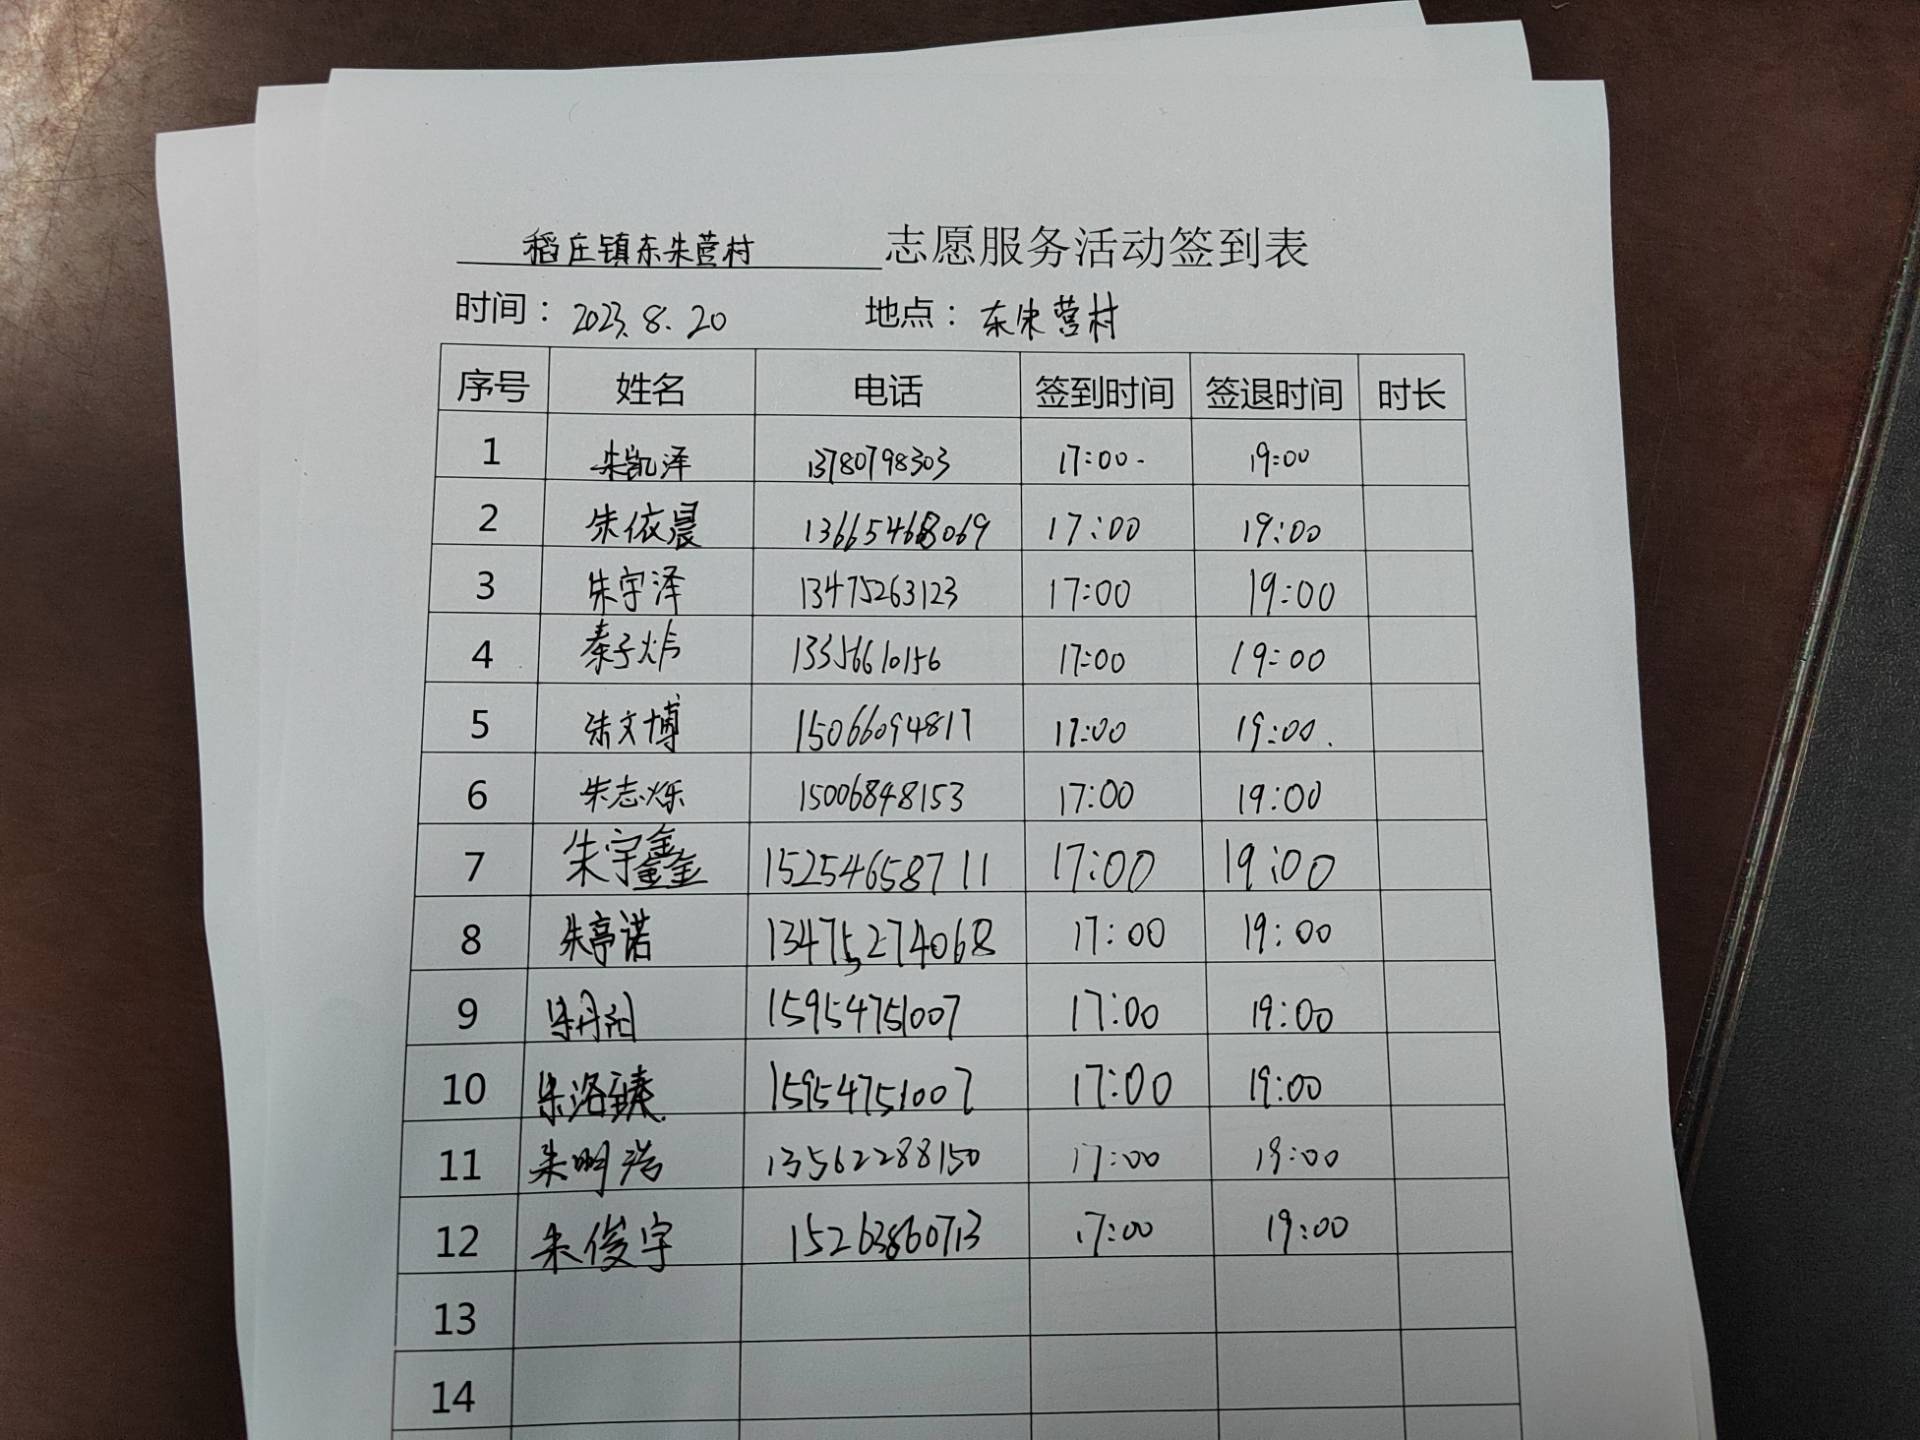 稻庄镇东朱营村 志愿服务活动签到表
时间： 2023.8.20 地点： 东朱营村
序号 姓名 电话 签到时间 签退时间 时长
1 朱凯泽 13780798303 17:00 19:00
2 朱依晨 13665468069 17:00 19:00
3 朱宇泽 13475263123 17:00 19:00
4 秦子 13356610156 17:00 19:00
5 朱文博 15066094817 17:00 19:00.
6 朱志烁 15006848153 17:00 19:00
7 朱宇鑫 15254658711 17:00 19:00
8 朱亭诺 13475274068 17:00 19:00
9 朱丹阳 15954751007 17:00 19:00
10 朱洛臻 15954751007 17:00 19:00
11 朱明浩 13562288150 17:00 19:00
12 朱俊宇 15263860713 17:00 19:00
13
14